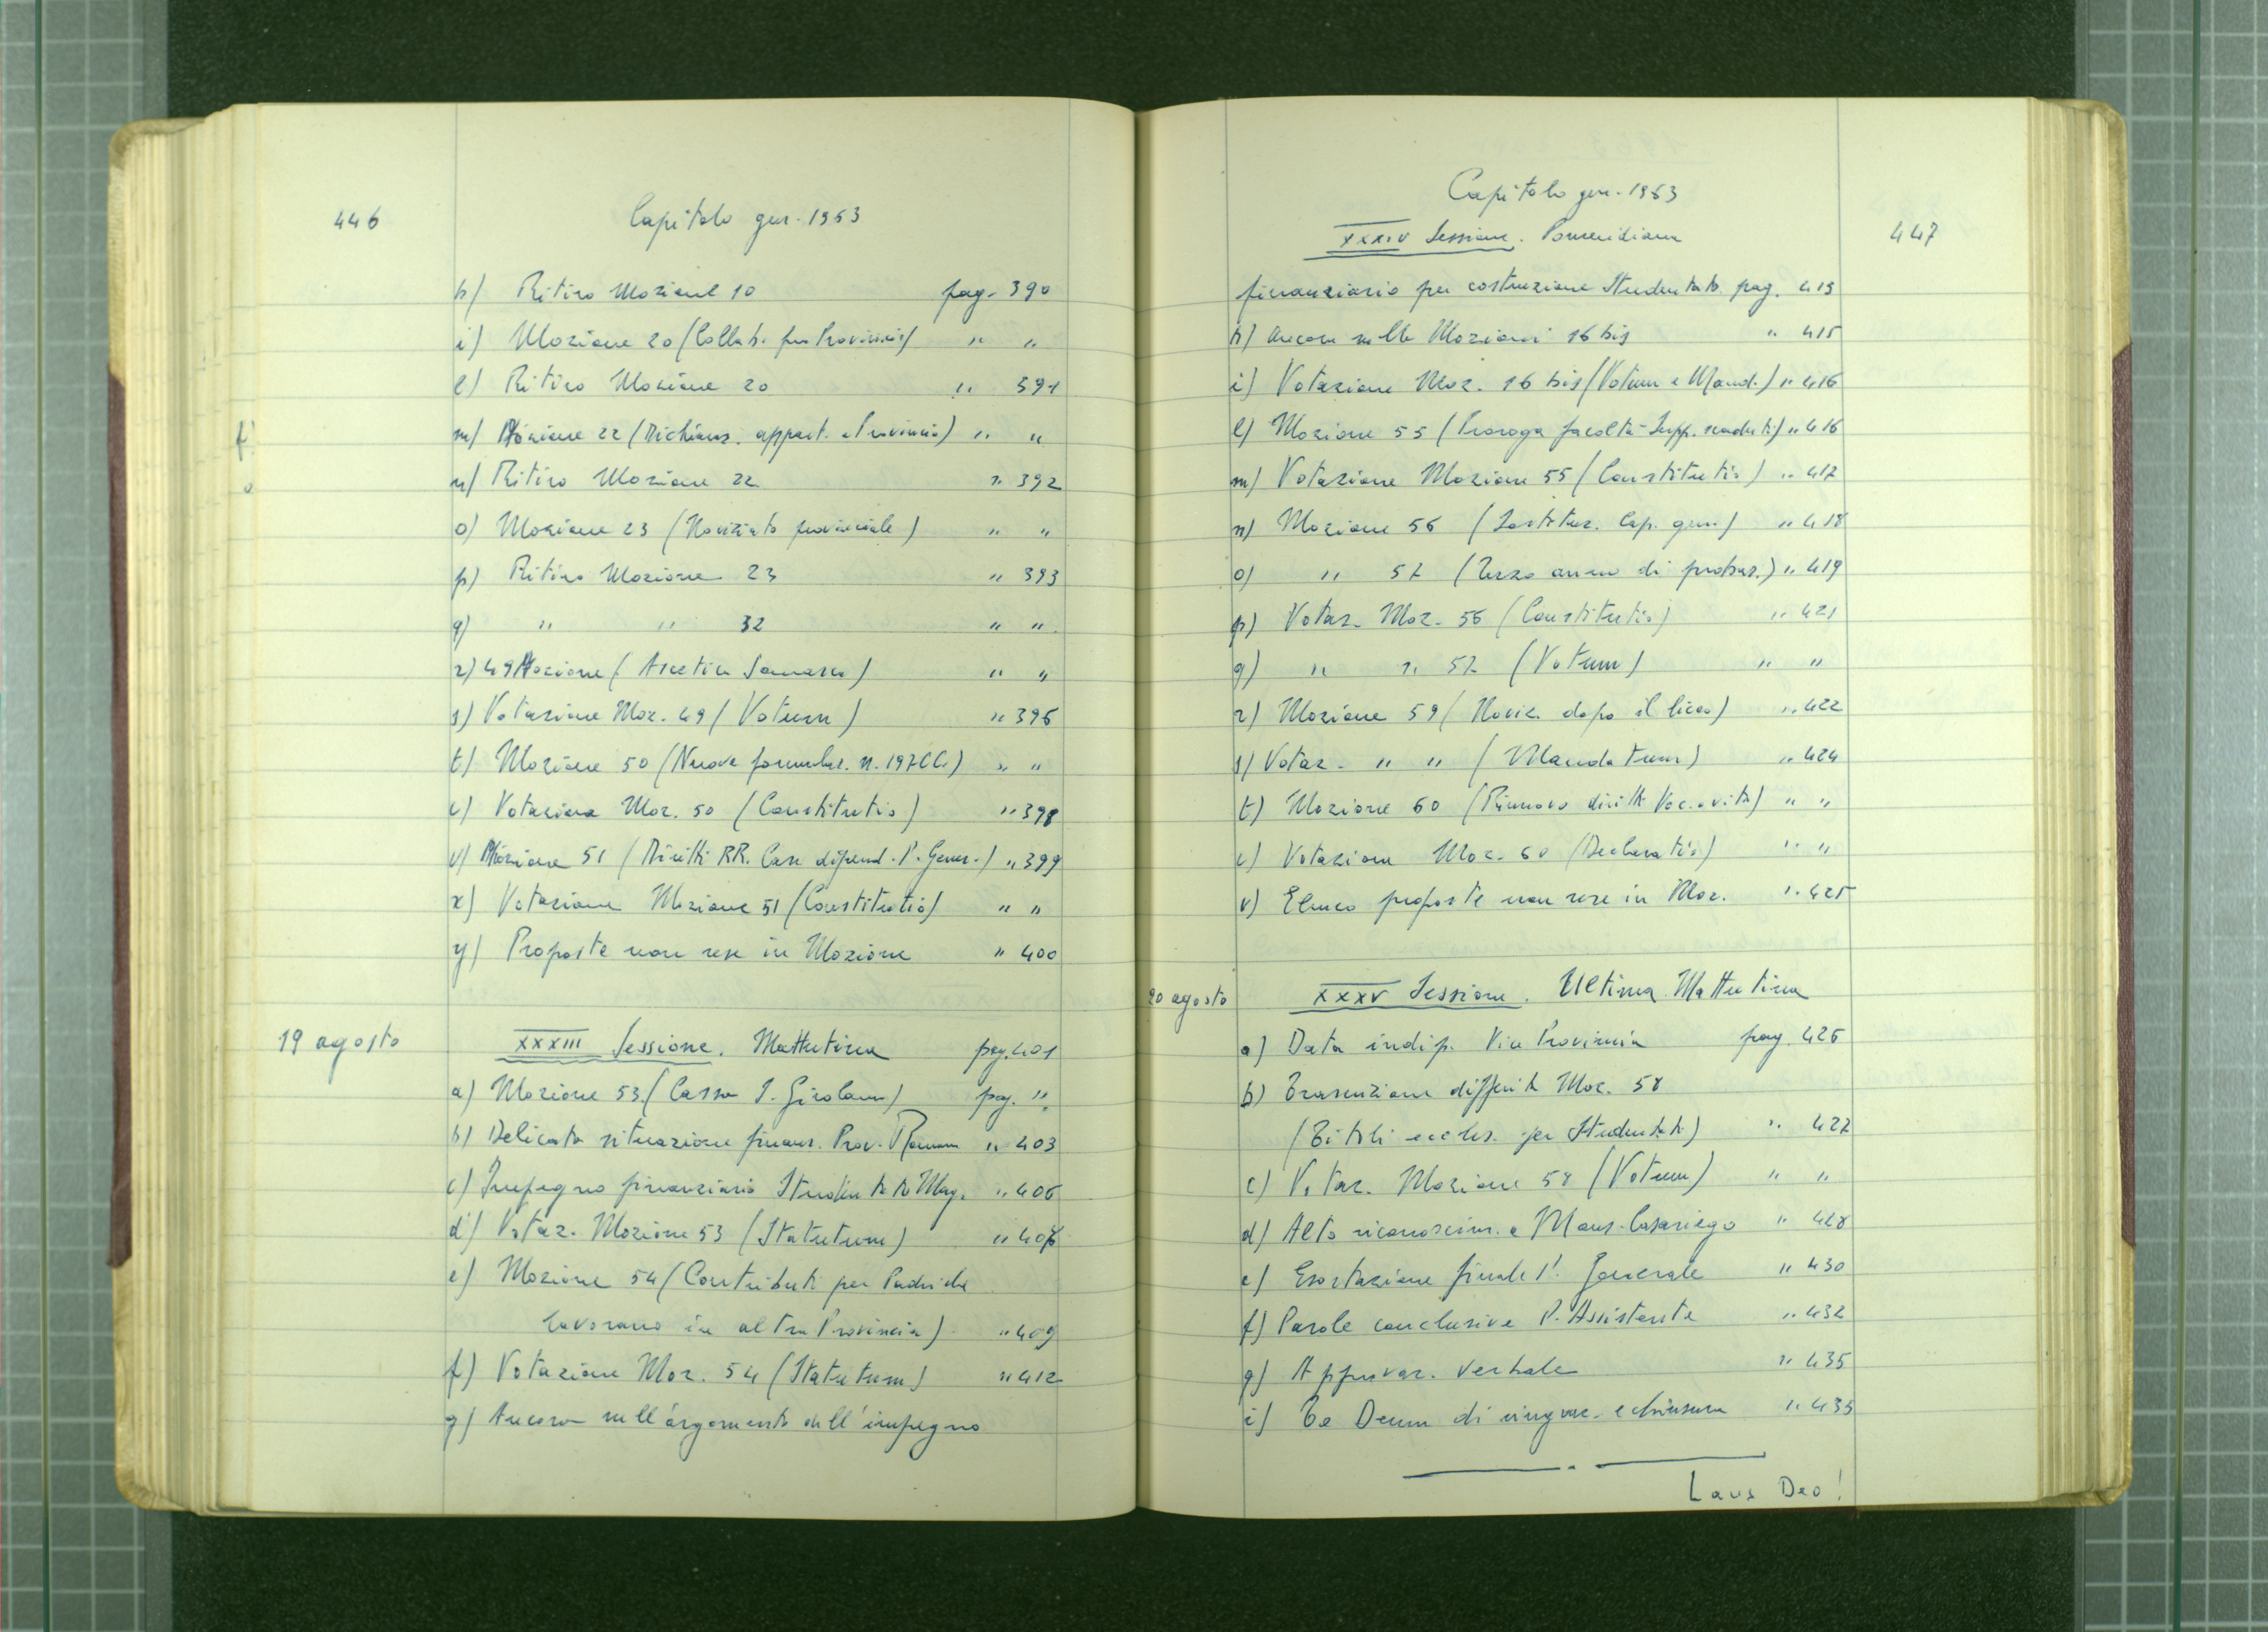 446
Capitolo gen. 1963
h) Ritiro Mozione 10 pag. 390
i) Mozione 20 (Collab. fra Provincie) " "
l) Ritiro Mozione 20 " 391
m) Mozione 22 (Dichiaraz. appart. a Provincia) " "
n) Ritiro Mozione 22 " 392
o) Mozione 23 (Noviziato provinciale) " "
p) Ritiro Mozione 23 " 393
q) " " 32 " "
r) 49 Mozione (Ascetica Somasca) " "
s) Votazione Moz. 49 (Votum) " 396
t) Mozione 50 (Nuova formulaz. n. 197 CC.) " "
u) Votazione Moz. 50 (Constitutio) " 398
v) Mozione 51 (Diritti RR. Case dipend. P. Gener.) " 399
x) Votazione Mozione 51 (Constitutio) " "
y) Proposte non rese in Mozione " 400
19 agosto
XXXIII Sessione. Mattutina pag. 401
a) Mozione 53. (Cassa S. Girolamo) pag. "
b) Delicata situazione finanz. Prov. Romana " 403
c) Impegno finanziario Studentato Mag. " 406
d) Votaz. Mozione 53 (Statutum) " 407
e) Mozione 54 (Contributi per Padri che
lavorano in altra Provincia) " 409
f) Votazione Moz. 54 (Statutum) " 412
g) Ancora sull'argomento dell'impegno
Capitolo gen. 1963
447
XXXIV Sessione. Pomeridiana
finanziario per costruzione Studentato pag. 413
h) Ancora sulle Mozioni 16 bis " 415
i) Votazione Moz. 16 bis (Votum e Mand.) " 416
l) Mozione 55 (Proroga facoltà - Supp. scaduti) " 416
m) Votazione Mozione 55 (Constitutio) " 417
n) Mozione 56 (Sostituz. Cap. gen.) " 418
o) " 57 (Terzo anno di probaz.) " 419
p) Votaz. Moz. 56 (Constitutio) " 421
q) " " 57 (Votum) " "
r) Mozione 59 (Noviz. dopo il liceo) " 422
s) Votaz. " " (Mandatum) " 424
t) Mozione 60 (Rinnovo diritti Voc. a vita) " "
u) Votazione Moz. 60 (Declaratio) " "
v) Elenco proposte non rese in Moz. " 425
20 agosto
XXXV Sessione. Ultima Mattutina
a) Data indip. Vice Provincia pag. 426
b) Trasmissione differita Moz. 58
(Titoli eccles. per Studentati) " 427
c) Votaz. Mozione 58 (Votum) " "
d) Alto riconoscim. a Mons. Casariego " 428
e) Esortazione finale P. Generale " 430
f) Parole conclusive P. Assistente " 432
g) Approvaz. verbale " 435
i) Te Deum di ringraz. e chiusura " 435
Laus Deo!